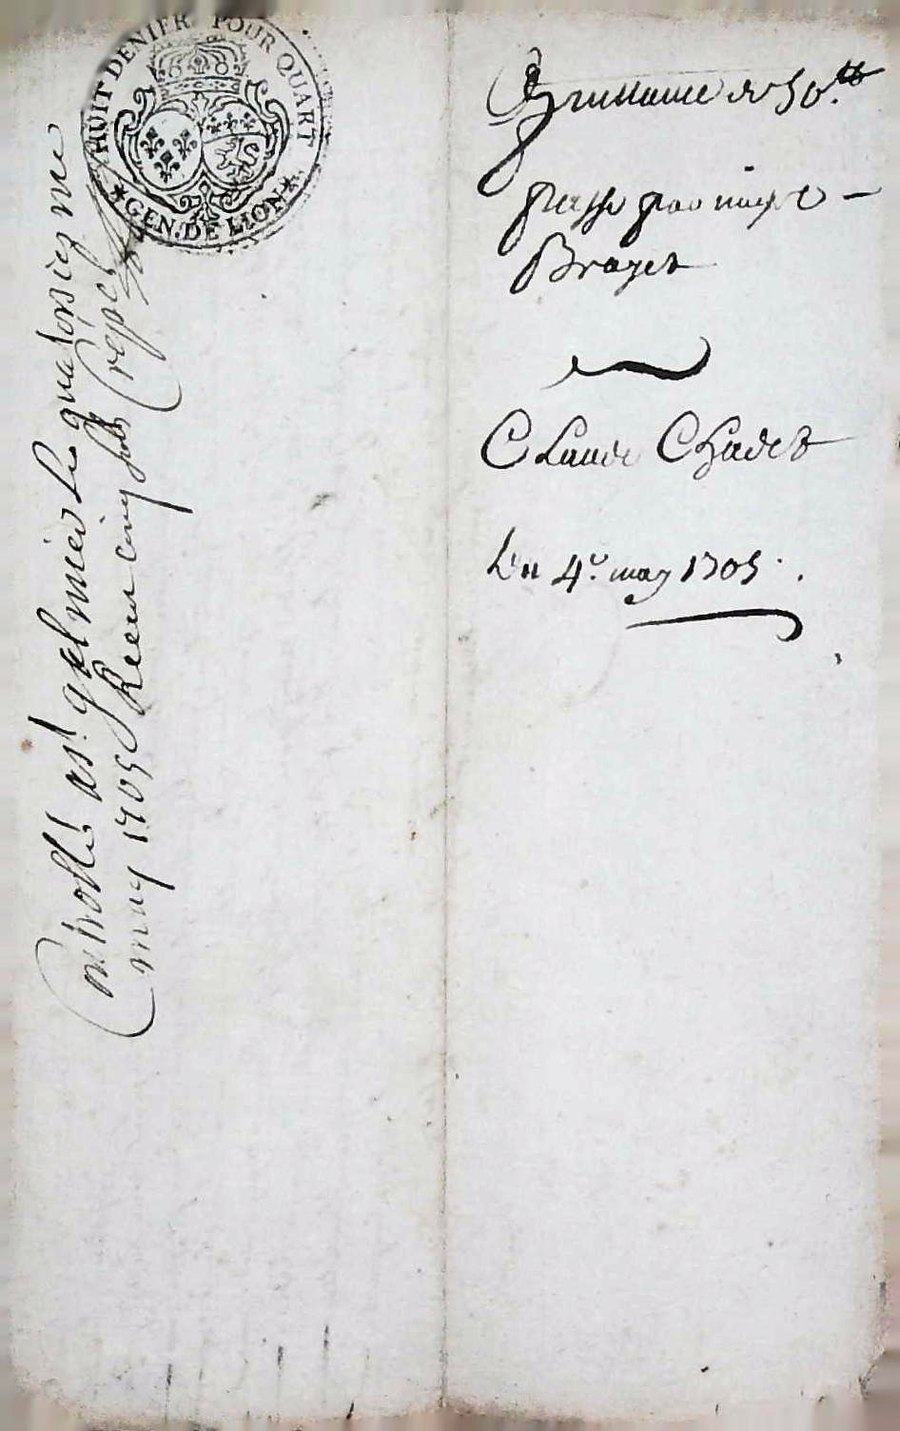 HUIT DENIER POUR QUART
GEN. DE LION
Controllé a St galmier Le quatorzieme
may 1705 Receu cinq sols Crepet
Quittance de 50.tt
passe par
Brayet
Claude Chadet
Du 4.e may 1705.